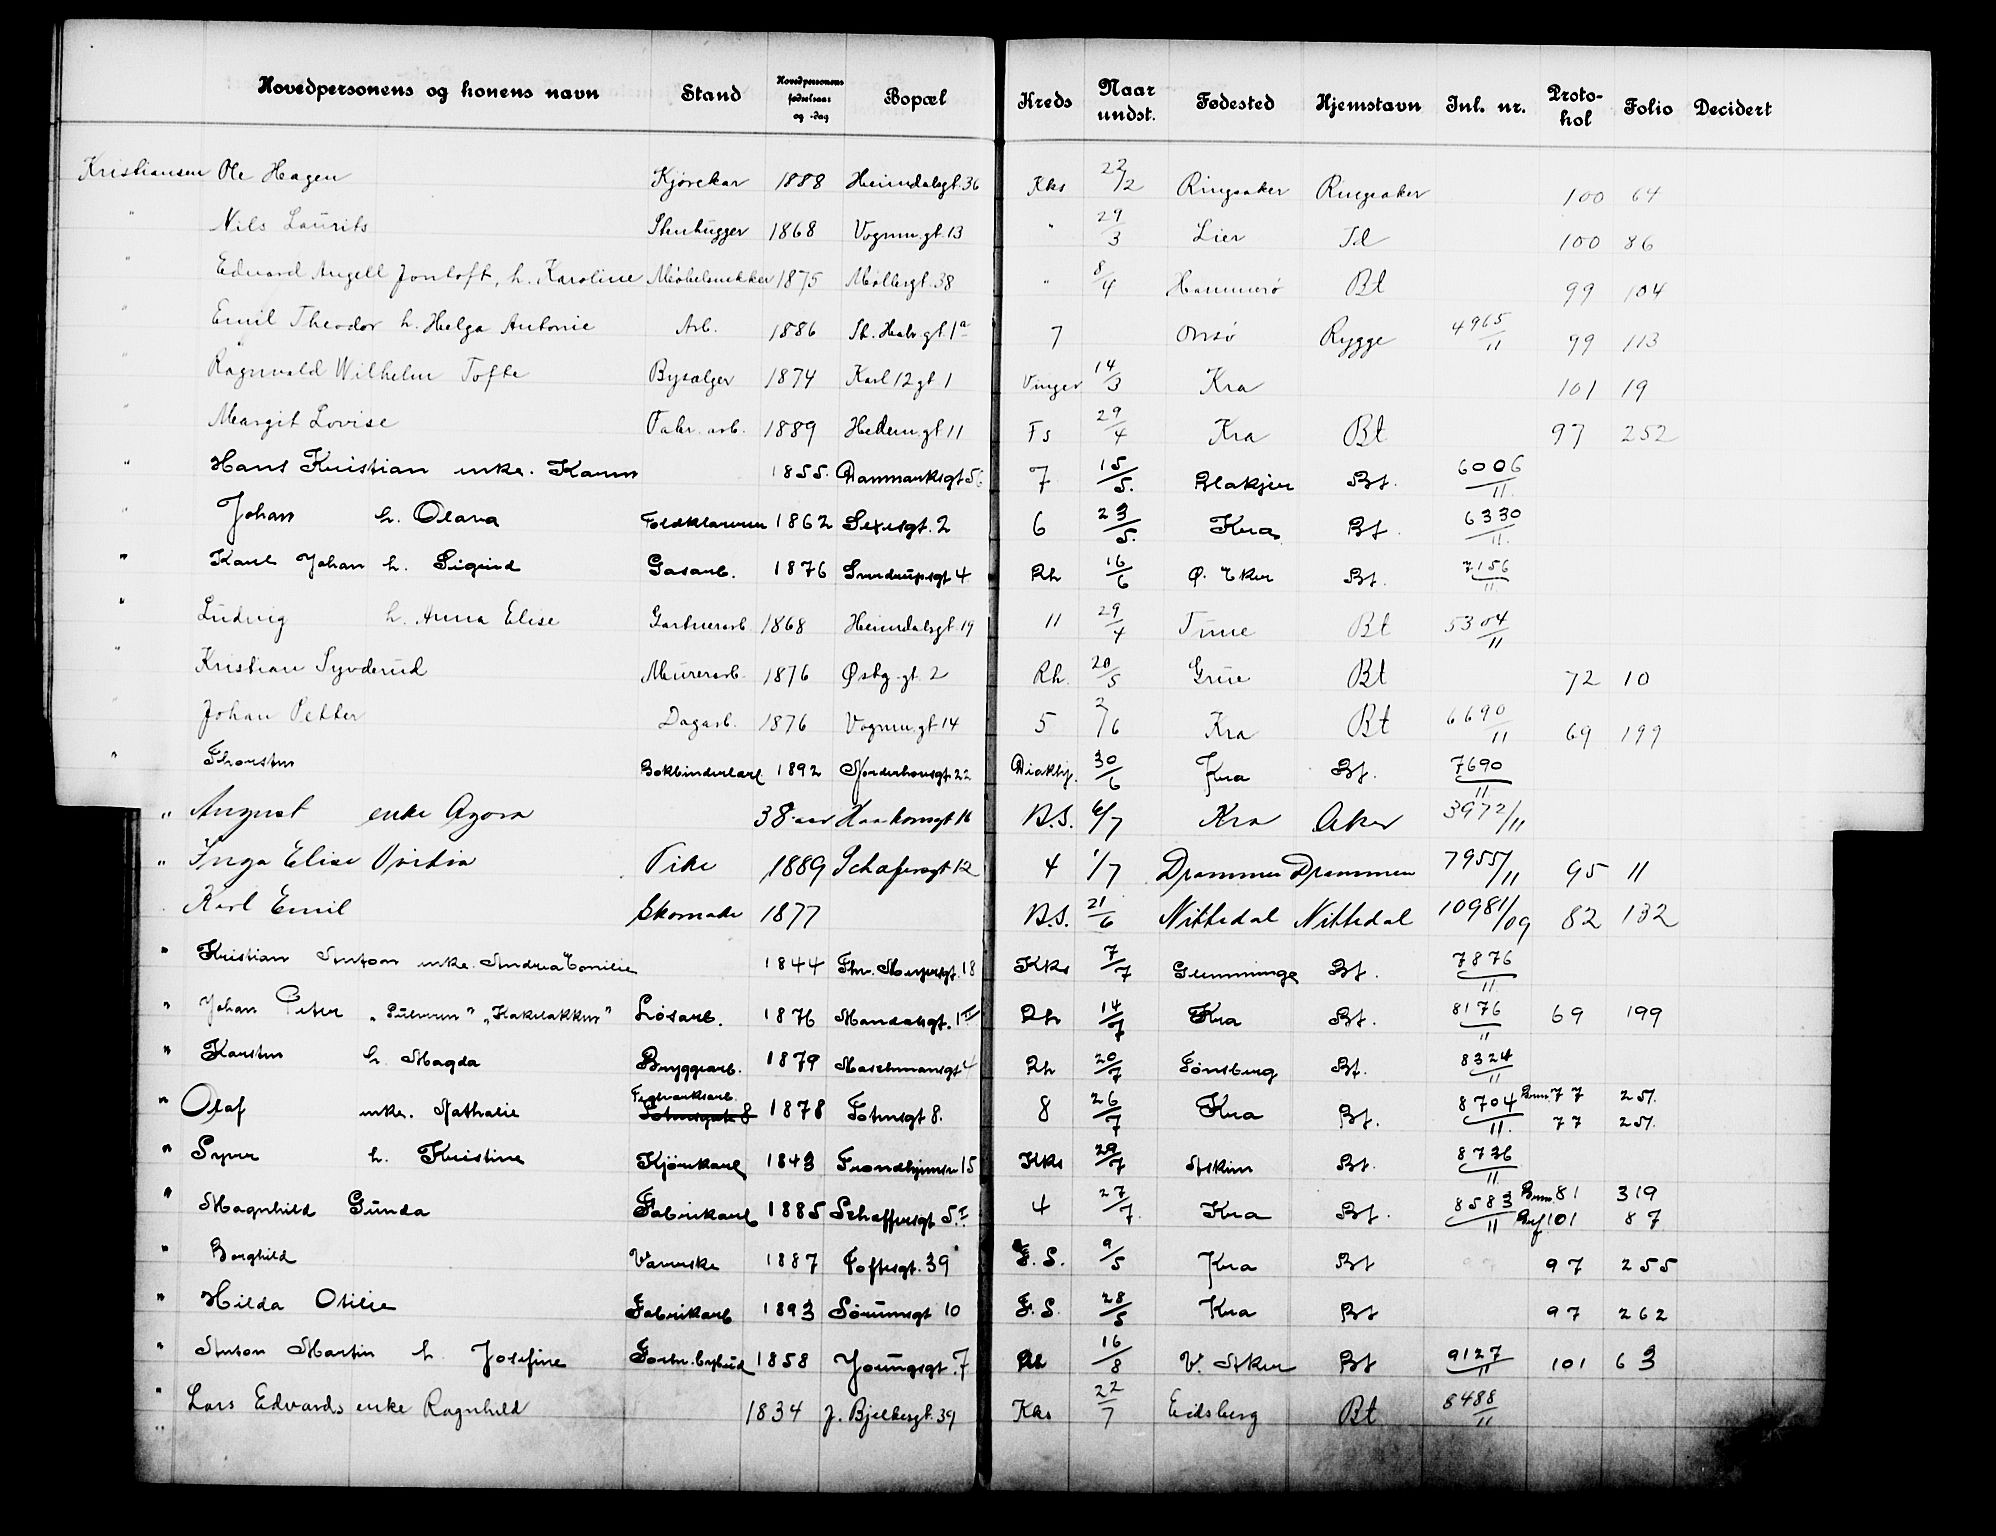 Hovedpersonens og konens navn Stand Hovedpersonens fødselsaar og -dag Bopæl Kreds Naar undst. Fødested Hjemstavn Inl. nr. Proto-kol Folio Decidert
Kristiansen Ole Hagen Kjørekar 1888 Heimdalsgt. 36 Kks 22/2 Ringsaker Ringsaker 100 64
" Nils Laurits Stenhugger 1868 Vognm.gt. 13 " 29/3 Lier Td 100 86
" Edvard Angell Jontoft, h. Karoline Møbelsnekker 1875 Møllergt. 38 " 8/4 Hammerø Bt 99 104
" Emil Theodor h. Helga Antonie Arb. 1886 St. Halv.gt. 1a 7 Onsø Rygge 4965/11 99 113
" Ragnvald Wilhelm Tofte Bysælger 1874 Karl 12 gt 1 Vinger 14/3 Kra 101 19
" Margit Lovise Fabr. arb. 1889 Hedem.gt 11 Fs 29/4 Kra Bt 97 252
" Hans Kristian enke. Karen 1855. Danmarksgt 56 7 15/5. Blakjer Bt. 6006/11.
" Johan h. Olava 1862 Sexesgt. 2 6 23/5. Kra. Bt. 6330/11.
" Karl Johan h. Sigrid Gasarb. 1876 Sundrupsgt 4 Rh 16/6 Ø. Eker Bt. 7156/11.
" Ludvig h. Anna Elise Gartnerarb 1868 Heimdalsgt. 19 11 29/4 Tune Bt 5304/11
" Kristian Syvderud Murerarb. 1876 Østbg. gt. 2 Rh. 20/5 Grue Bt 72 10
" Johan Petter Dagarb. 1876 Vognm.gt 14 5 2/6 Kra Bt 6690/11 69 199
" Thorsten Bokbinderlærl 1892 Norderhovsgt. 22 Diakhj. 30/6 Kra Bt. 7690/11
" August enke Agora 38 aar Haakonsgt 16 B.S. 6/7 Kra Aker 3972/11
" Inga Elise Pike 1889 Schafersgt 12 4 1/7 Drammen Drammen 7955/11 95 11
Karl Emil Skomake 1877 B.S. 21/6 Nittedal Nittedal 10981/09 82 132
" Kristian Antoon enke. Andrea Emilie 1844 Thv. Meyersgt. 18 Kks 7/7 Bt. 7876/11.
" Johan Peter „ " „Kakelakken" Løsarb. 1876 Mandalsgt. 1 II Rh 14/7 Kra Bt. 8176/11 69 199
" Karsten h. Magda Bryggearb. 1879 Maschmansgt 4 Rh 20/7 Tønsberg Bt. 8324/11
" Olaf enke. Nathalie Totensgata 8 1878 Totensgt 8. 8 26/7 Kra Bt. 8704/11. 77 251.
77 251.
" Syver h. Kristine Kjørekarl 1843 Trondhjemsv 15 Kks 29/7 Askim Bt. 8736/11.
" Magnhild Gunda Fabrikarb 1885 Schaffersgt 5 I 4 27/7. Kra Bt. 8583/11 81 319
101 87
" Borghild Væverske 1887 Toftesgt. 39 F. S. 9/5 Kra Bt 97 255
" Hilda Otilie Fabrikarb 1893 Sørumsgt 10 F. S. 28/5 Kra Bt 97 262
" Anton Martin h. Josefine Forhv. bybud 1858 Youngsgt. 7 Rh 16/8 V. Aker Bt 9127/11 101 63
" Lars Edvards enke Ragnhild 1834 J. Bjelkesgt. 39 Kks 22/7 Eidsberg Bt 8488/11
"